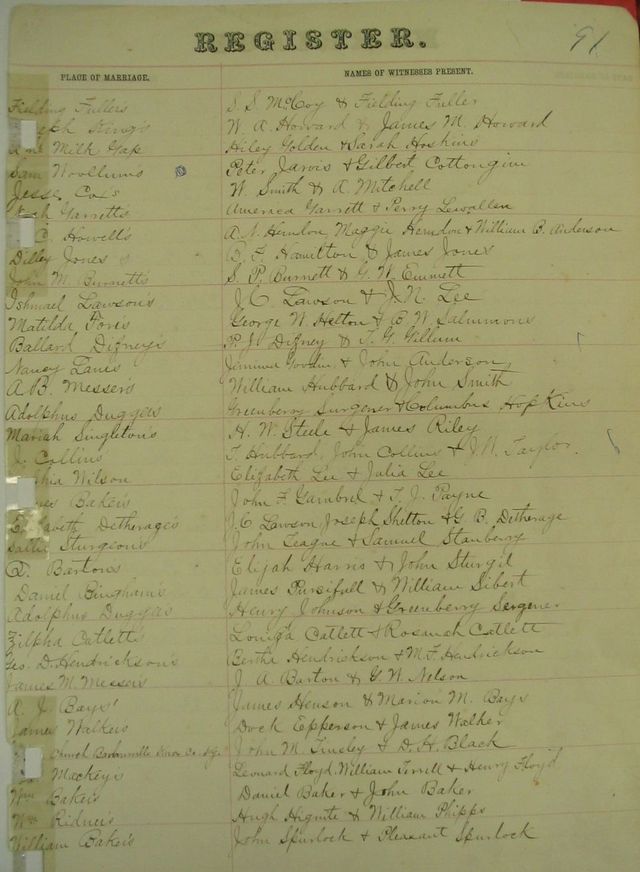 91
REGISTER.
PLACE OF MARRIAGE. NAMES OF WITNESSES PRESENT.
Fielding Fullers S. S. McCoy & Fielding Fuller
King's W. A. Howard & James M. Howard
Milk Gap Hiley Golden & Sarah Hoskins
Sam Woollums Peter Jarvis & Gilbert Cottongim
Jesse Cox's W. Smith & A. Mitchell
Garrett's America Garrett & Perry Lewallen
C. Howell's A. N. Herndon, Maggie Herndon & William B. Anderson
Dilley Jones's B. F. Hamilton & James Jones
John M. Burnett's S. P. Burnett & G. W. Emmett
Ishmael Lawson's J. C. Lawson & J. N. Lee
Matilda Fores George W. Helton & B. W. Salummons
Ballard Dizney's P. J. Dizney & S. G. Gillum
Nancy Lanes Jemima Goodin & John Anderson
A. B. Messer's William Hubbard & John Smith
Adolphus Duggas Greenberry Surgener & Columbus Hopkins
Mariah Singleton's H. W. Steele & James Riley
J. Collins T. Hubbard, John Collins & J. W. Taylor.
Wilson Elizabeth Lee & Julia Lee
Baker's John F. Gambrel & T. J. Payne
Elizabeth Detherage's J. C. Lawson, Joseph Shelton & G. B. Detherage
Sallie Sturgeon's John League & Samuel Stanberry
D. Bartons Elijah Harris & John Sturgil
Daniel Bingham's James Pursifull & William Sibert
Adolphus Duggas Henry Johnson & Greenberry Sergener
Zilpha Catlett's Louiza Catlett & Rosanah Catlett
Geo. D. Hendrickson's Bertha Hendrickson & M. F. Hendrickson
James M. Messers J. A. Barton & G. W. Nelson
A. J. Bays' James Henson & Marion M. Bays
James Walkers Dock Epperson & James Walker
Church Barbourville Knox Co. Ky. John M. Tinsley & D. H. Black
Mackey's Leonard Floyd, William Terrell & Henry Floyd
Wm Baker's Daniel Baker & John Baker
Wm Ridner's Hugh Hignite & William Phipps
William Baker's John Spurlock & Pleasant Spurlock